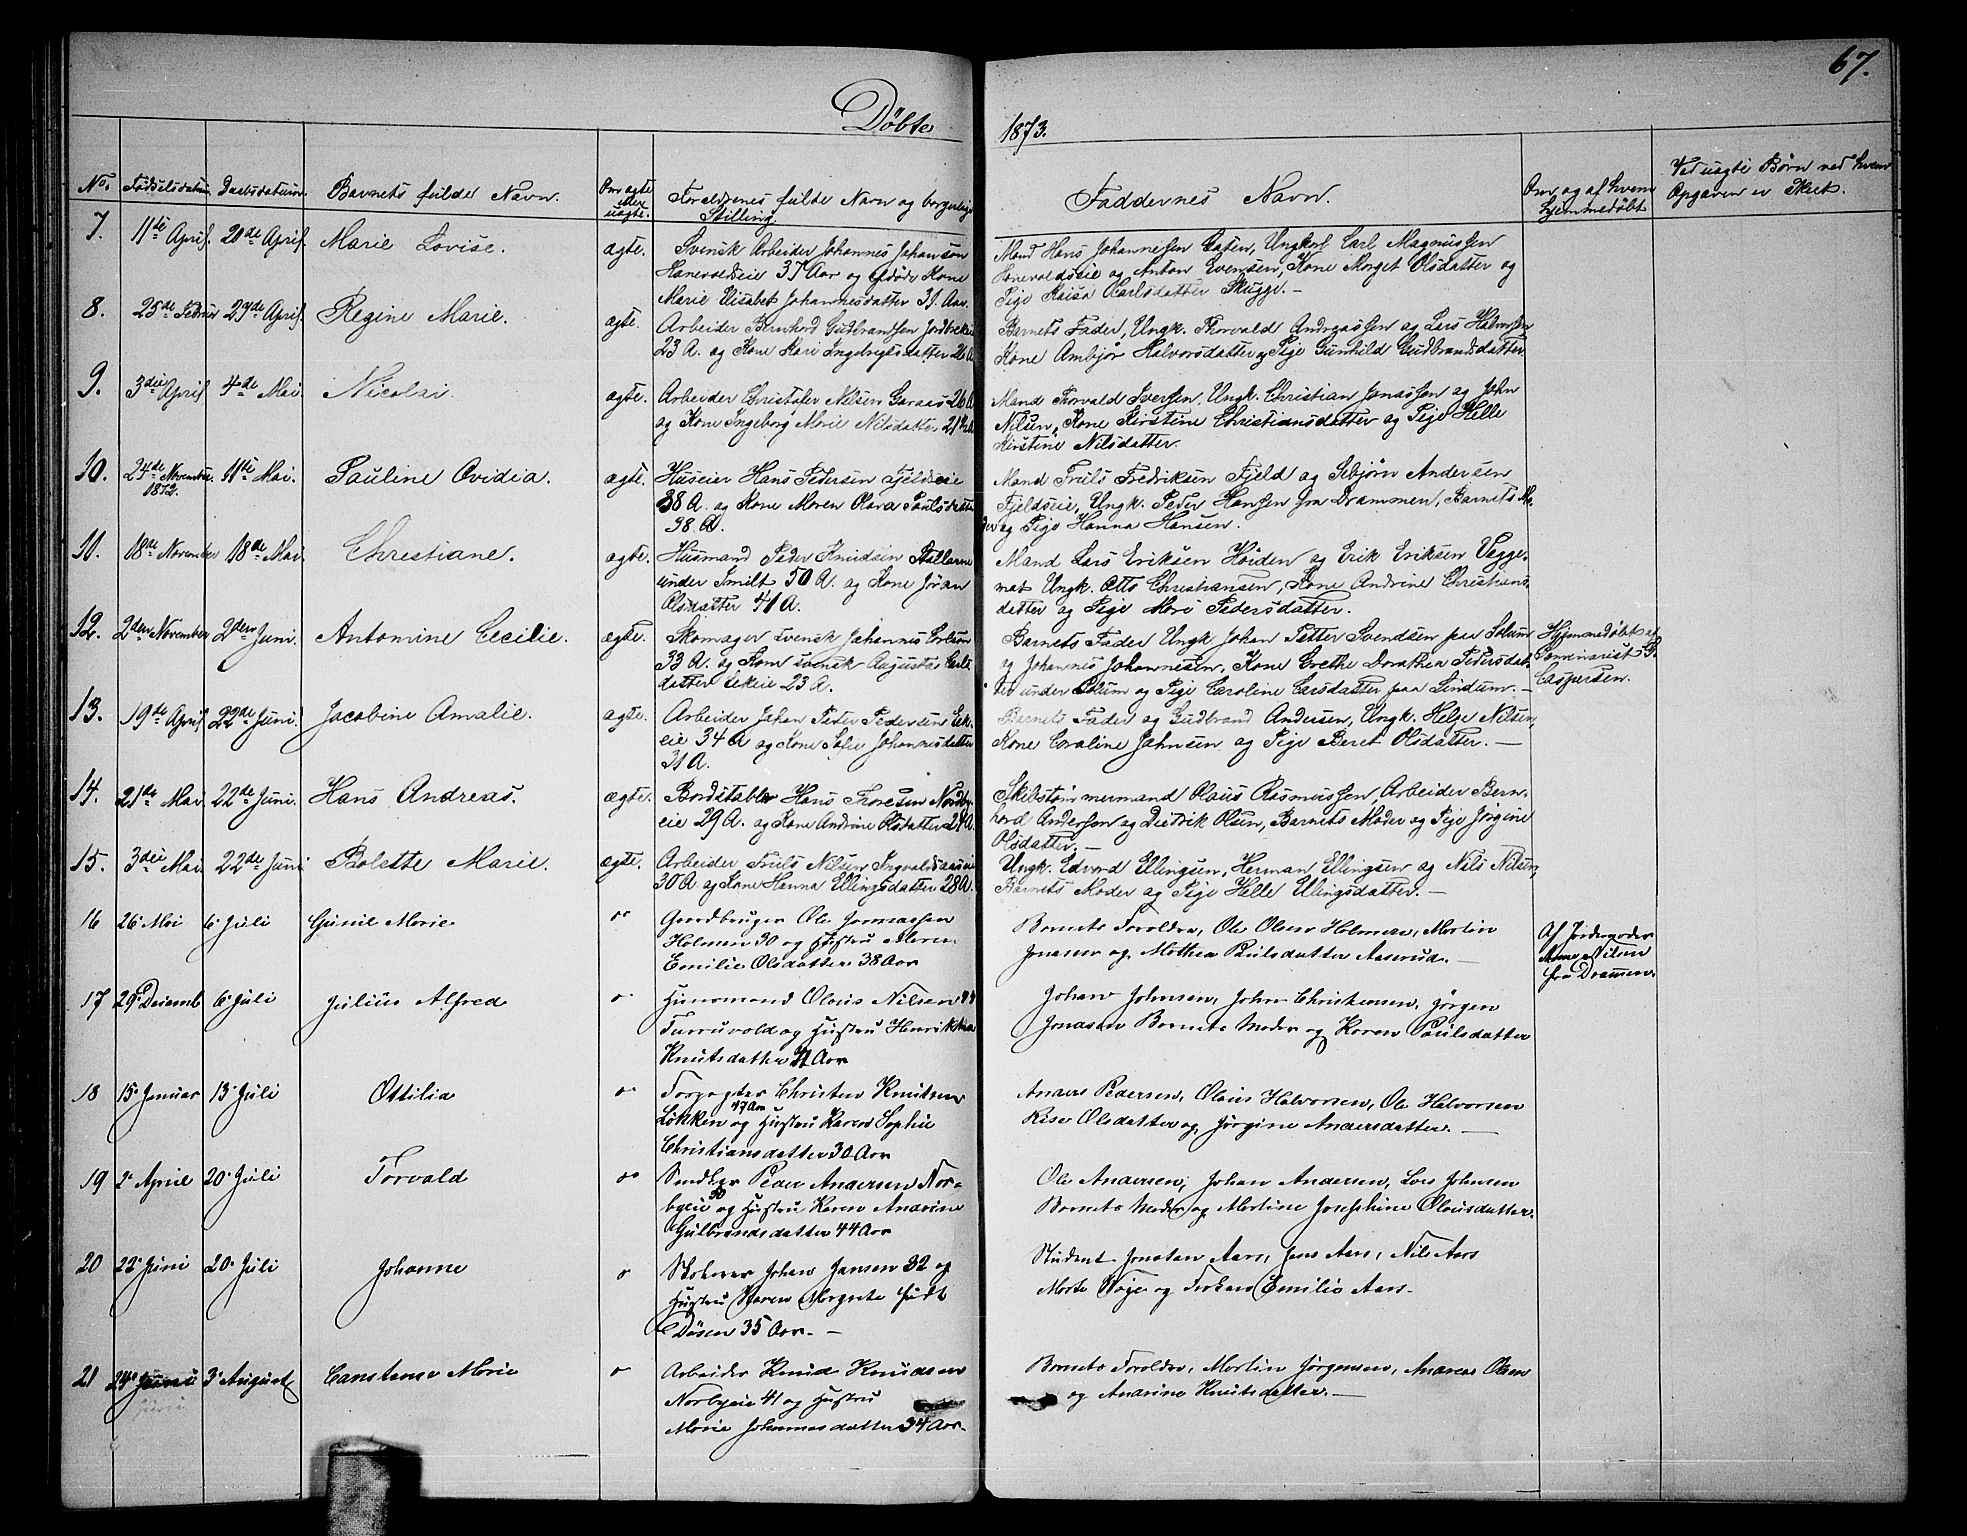 67.
Döbte 1873.
No. Fødselsdatum Daabsdatum. Barnets fulde Navn. Om ægte eller uægte. Forældrenes fulde Navn og borgerlige Stilling. Faddernes Navn. Om og af hvem hjemmedøbt Ved uægte Børn ved hvem Opgaven er skeet.
7. 11te April. 20de April. Marie Lovise. ægte. Svensk Arbeider Johannes Johanson
Hanevoldseie 37 Aar og Kone
Marie Elisabet Johannesdatter 31. Aar.
Mand Hans Johannesen Ungkarl Carl Magnussen
Hanevoldseie og Anton Evensen, Kone Marget Olsdatter og
Pige Kaisa Carlsdatter Skugge. —
8. 25de Februar 27de April. Regine Marie. ægte. Arbeider Bernhard Gudbrandsen
23 A. og Kone Kari Ingebrigtsdatter 26 A.
Barnets Fader, Ungk. Thorvald Andreassen og Lars Halvorsen,
Kone Ambjør Halvorsdatter og Pige Gunhild Gudbrandsdatter
9. 3die April 4de Mai Nicolai. ægte. Arbeider Christofer Nilsen Garaas 26 A
og Kone Ingeborg Marie Nilsdatter 21
Mand Thorvald Iversen, Ungk. Christian Jonassen og John
Nilsen, Kone Kirstine Christiansdatter og Pige Helle
Kirstine Nilsdatter.
10. 24de November 1872. 11te Mai. Pauline Ovidia. ægte. Huseier Hans Pedersen Fjeldseie
38 A. og Kone Maren Olava Poulsdatter
38 A.
Mand Truls Fredriksen Fjeld og Sebjørn Andersen
Fjeldseie, Ungk. Peder Hansen fra Drammen, Barnets Mo-
der og Pige Hanna Hansen.
11. 18de November 18de Mai. Christiane. ægte. Husmand Peder Knudsen Stallerne
under Smilt 50 A. og Kone Jøran
Olsdatter 41 A.
Mand Lars Eriksen Høiden og Erik Eriksen
Ungk. Otto Christiansen, Kone Andrine Christians-
datter og Pige Mari Pedersdatter.
12. 2den November 2den Juni. Antomine Cecilie. ægte. Skomager svensk Johannes
33 A. og Kone svensk Auguste Carls-
datter Ekeie 23 A.
Barnets Fader Ungk. Johan Petter Svendsen paa Solum
og Johannes Johannesen, Kone Grethe Dorothea Pedersdat-
ter under Solum og Pige Caroline Larsdatter paa Lindum. —
Hjemmedøbt af
Seminarist
Caspersen.
13. 19de April 22de Juni. Jacobine Amalie. ægte. Arbeider Johan Peder Pedersen Ek-
eie 34 A og Kone Sofie Johannesdatter
31 A.
Barnets Fader og Gudbrand Andersen, Ungk. Helge Nilsen,
Kone Coraline Jahnsen og Pige Beret Olsdatter. —
14. 21de Mai 22de Juni. Hans Andreas. ægte. Bordstabler Hans Thoresen Nordby-
eie 29 A. og Kone Andrine Olsdatter 24 A.
Skibstømmermand Olaus Rasmussen, Arbeider Bern-
hard Andersen og Diedrik Olsen, Barnets Moder og Pige Jørgine
Olsdatter. —
15. 3die Mai 22de Juni Bolette Marie. ægte. Arbeider Truls Nilsen Ingvaldsaaseie
30 A. og Kone Hanna Ellingsdatter 28 A.
Ungk. Edvard Ellingsen, Herman Ellingsen og Nils Nilsen,
Barnets Moder og Pige Helle Ellingsdatter. —
16 26 Mai 6 Juli Gunil Marie Gaardbruger Ole Jonassen
Holmen 30 og Hustru Maren
Emilie Olsdatter 38 Aar
Barnets Forældre, Ole Olsen Holmen, Martin
Jonasen og Mathea Paulsdatter Aaserud. —
Af Jordemoder
Anne Nilsen
fra Drammen.
17 29 Decemb 6 Juli Julius Alfred Husmand Olaus Nilsen 44
Furruvold og Hustru Henrikkka
Knutsdatter Aar
Johan Johnsen, Johan Christensen, Jørgen
Jonasen Barnets Moder og Karen Paulsdatter
18 15 Januar 13 Juli Ottilia Forpagter Christen Knutsen
Løkken 47 Aar og Hustru Karen Sophie
Christiansdatter 30 Aar
Anders Pedersen, Olaus Halvorsen, Ole Halvorsen
Olsdatter og Jørgine Andersdatter. —
19 2 April 20 Juli Torvald Snedker Peder Andersen Nor-
byeie 50 og Hustru Karen Anarine
Gulbrandsdatter 44 Aar
Ole Andersen, Johan Andersen, Lars Johnsen
Barnets Moder og Martine Josephine Olausdatter.
20 22 Juni 20 Juli Johanne Johan Jansen 32 og
Hustru Karen Margrete født
Døsen 35 Aar. —
Student Jonatan Aars, Jens Aars, Nils Aars
Marte og Frøken Emilie Aars.
21 24 Juni 3 August Constanse Marie Arbeider Knud Knudsen
Juni
Norbyeie 41 og Hustru
Marie Johannesdatter 34 Aar.
Barnets Forældre, Martin Jørgensen, Anders Olsen
og Anarine Knutsdatter. —